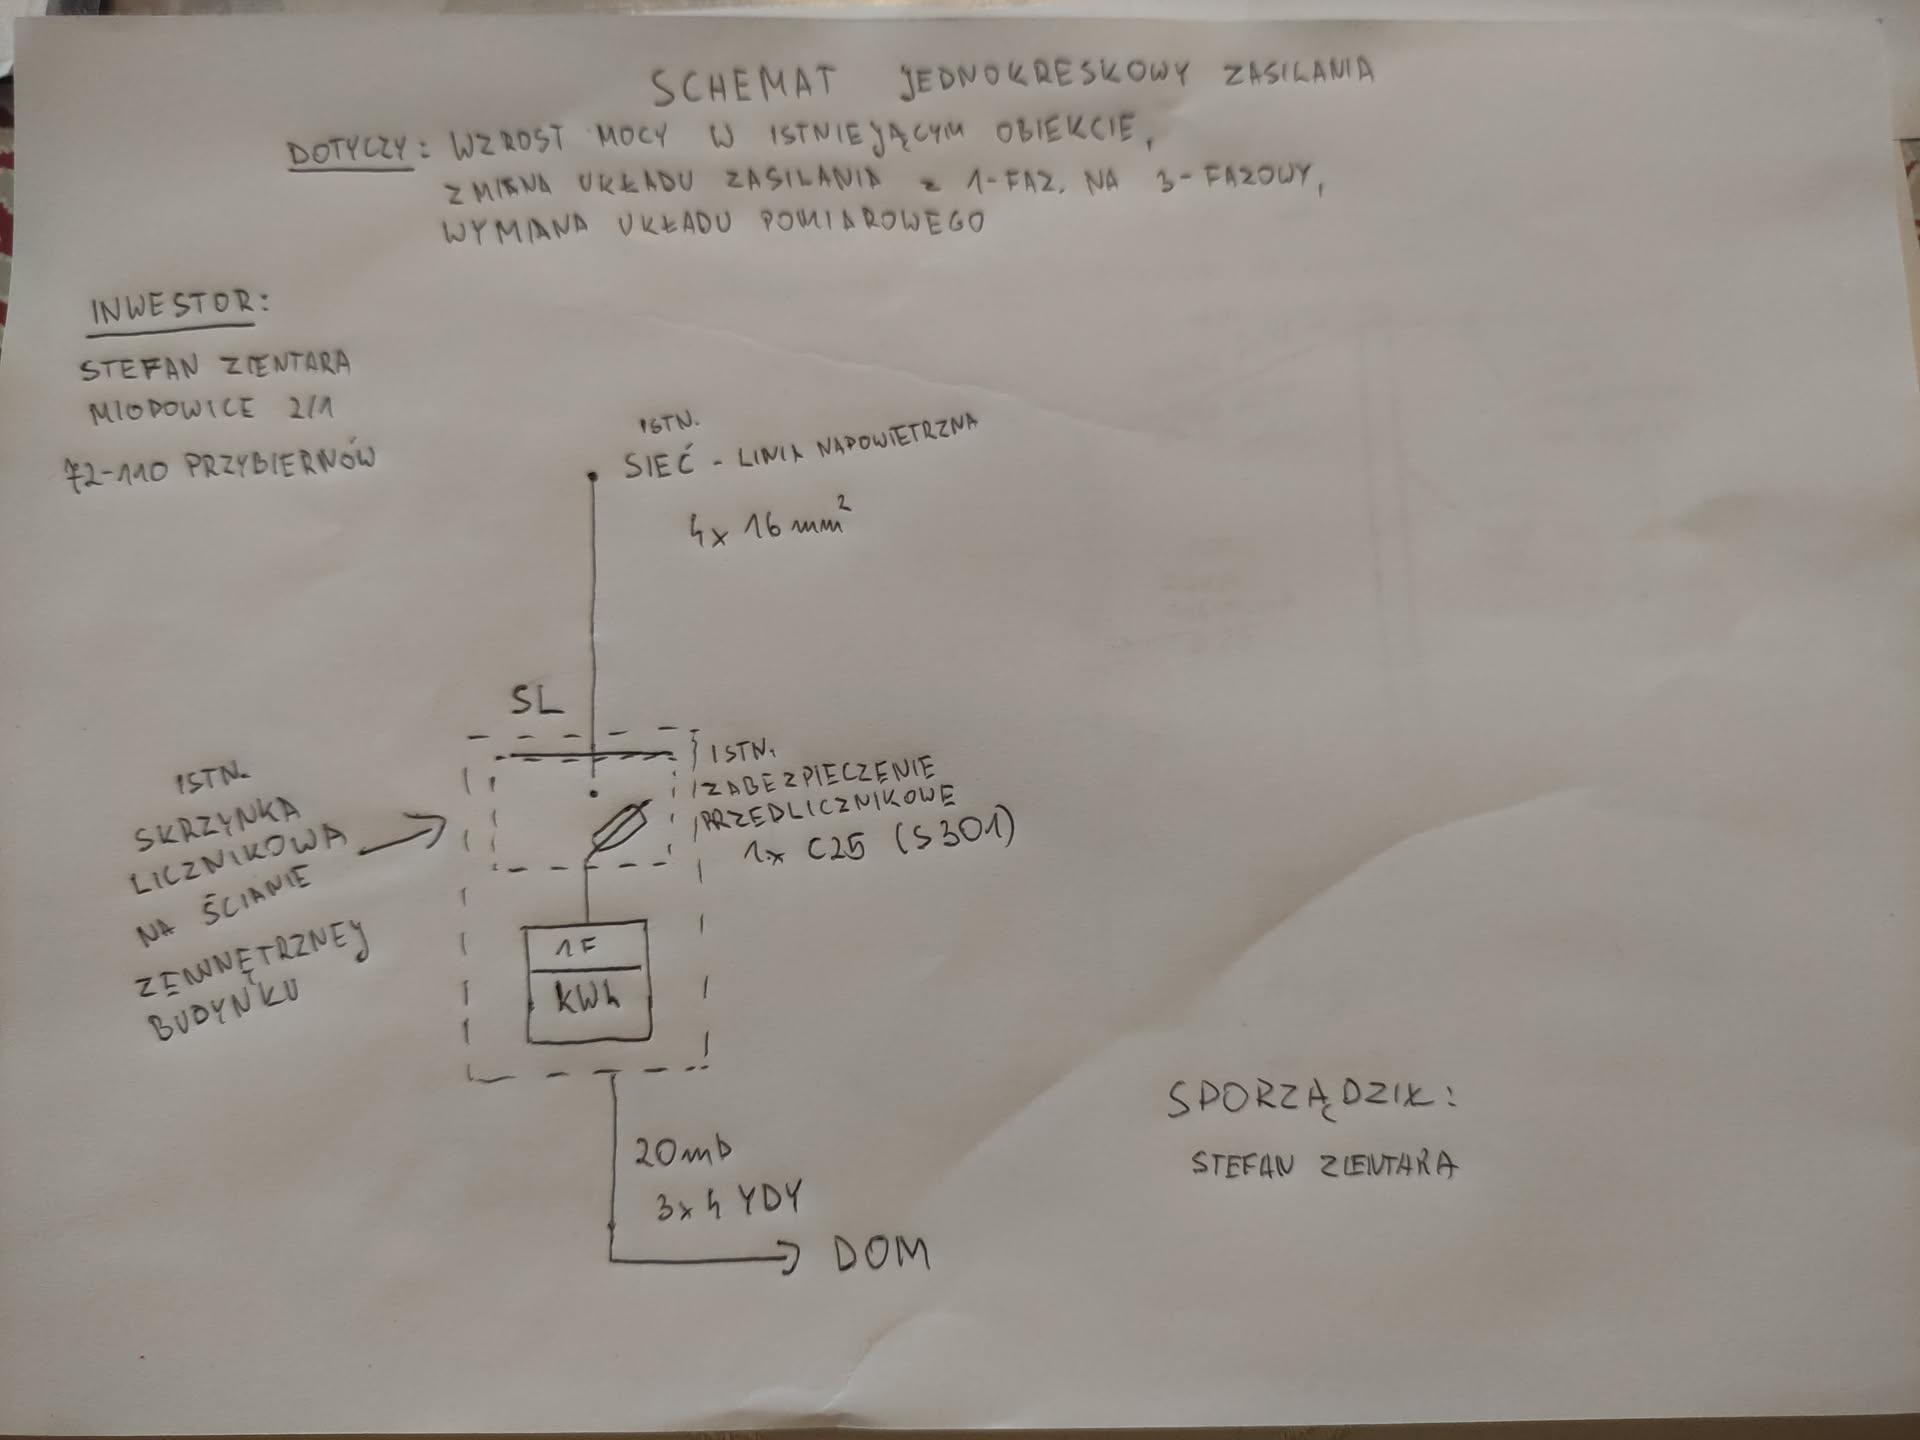 SCHEMAT JEDNOKRESKOWY ZASILANIA
DOTYCZY: WZROST MOCY W ISTNIEJĄCYM OBIEKCIE,
ZMIANA UKŁADU ZASILANIA Z 1-FAZ. NA 3-FAZOWY,
WYMIANA UKŁADU POMIAROWEGO
INWESTOR:
STEFAN ZIENTARA
MIODOWICE 2/1
72-110 PRZYBIERNÓW
ISTN.
SIEĆ - LINIA NAPOWIETRZNA
4x 16 mm²
SL
ISTN.
ZABEZPIECZENIE
PRZEDLICZNIKOWE
1x C25 (S301)
ISTN.
SKRZYNKA
LICZNIKOWA
NA ŚCIANIE
ZEWNĘTRZNEJ
BUDYNKU
1F
kWh
20mb
3x4 YDY
DOM
SPORZĄDZIŁ:
STEFAN ZIENTARA